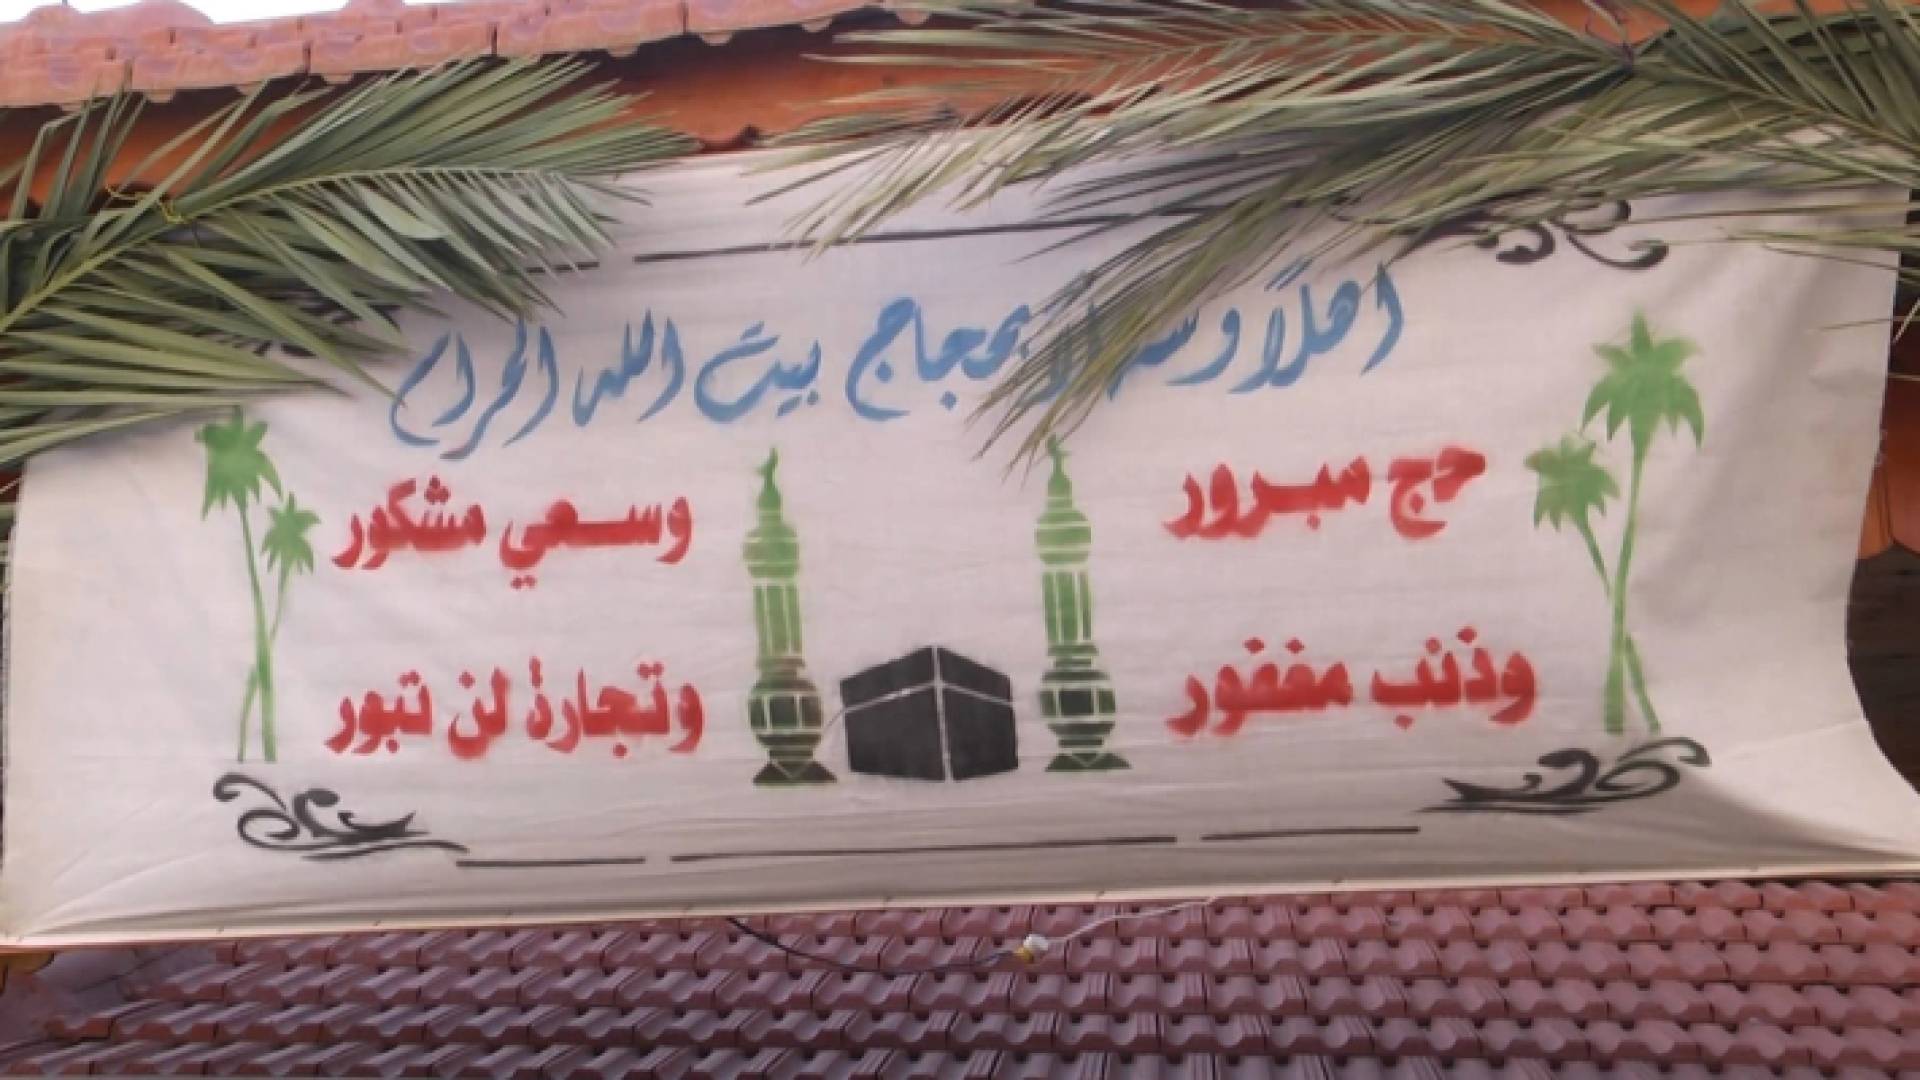 اهلاً وسهلاً بحجاج بيت الله الحرام
حج مبرور
وسعي مشكور
وذنب مغفور
وتجارة لن تبور